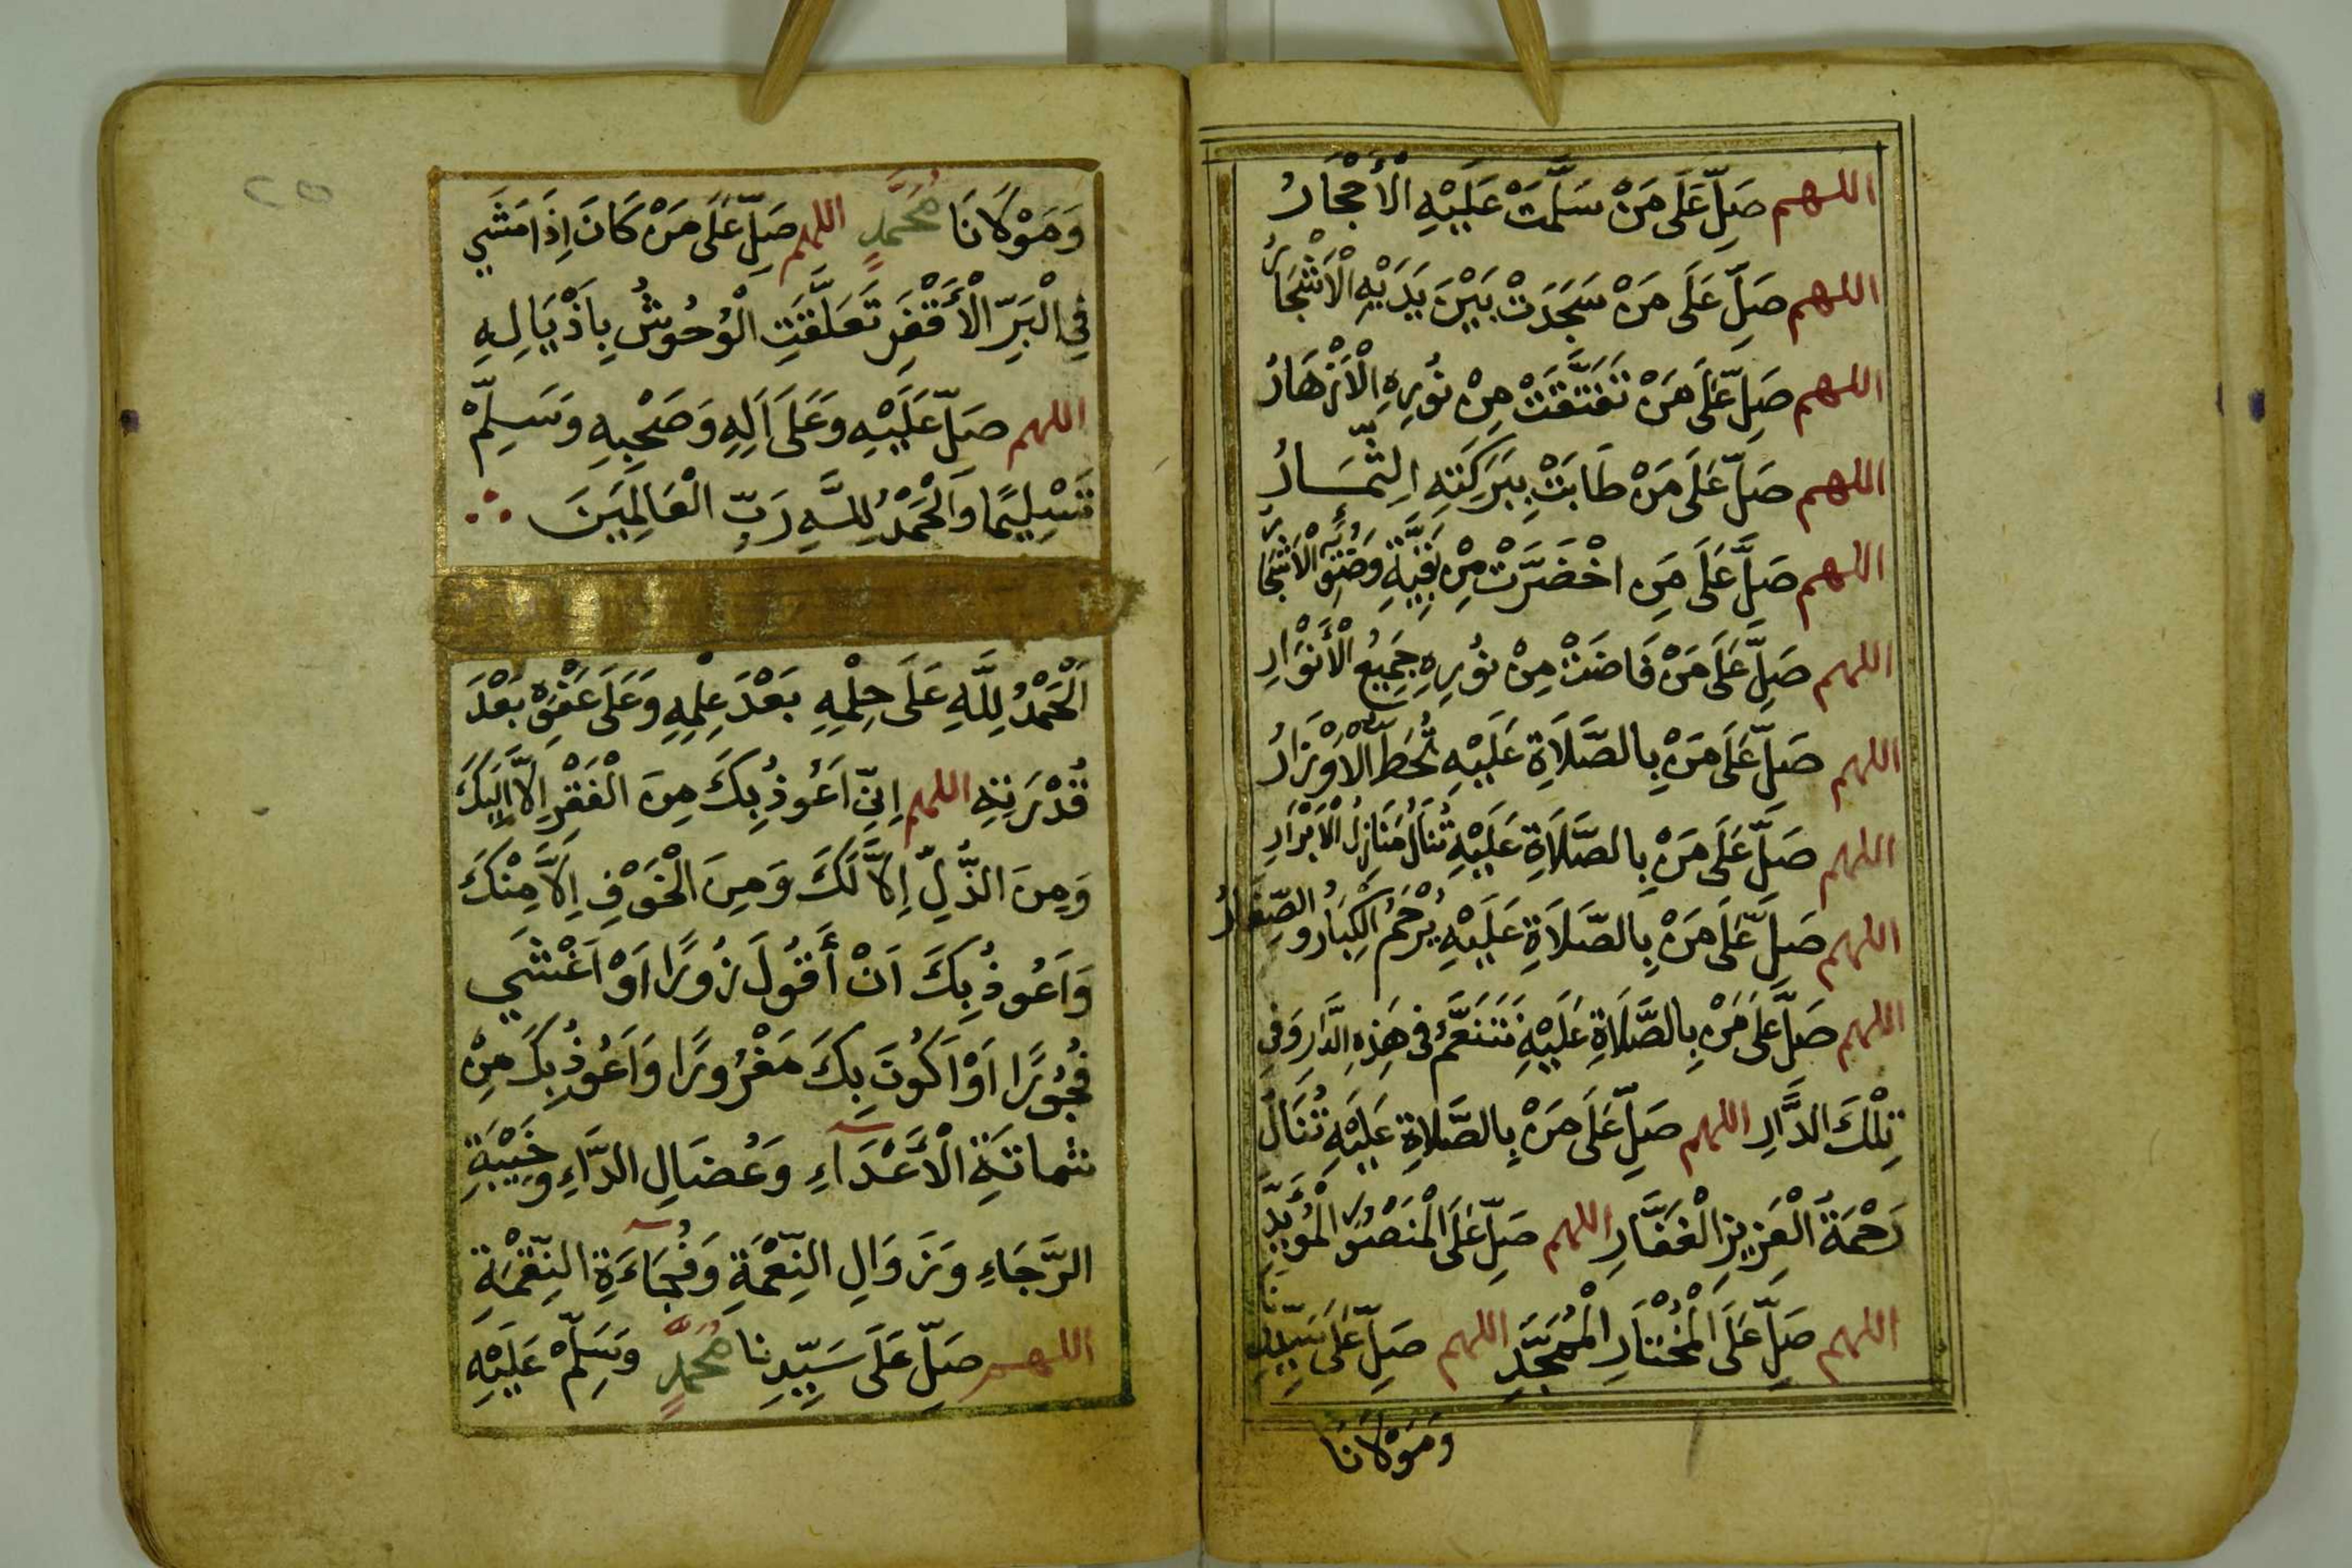 اللهم صَلِّ عَلَى مَنْ سَلَّمَتْ عَلَيْهِ الْأَحْجَارُ
اللهم صَلِّ عَلَى مَنْ سَجَدَتْ بَيْنَ يَدَيْهِ الْأَشْجَارُ
اللهم صَلِّ عَلَى مَنْ تَفَتَّقَتْ مِنْ نُورِهِ الْأَزْهَارُ
اللهم صَلِّ عَلَى مَنْ طَابَتْ بِبَرَكَتِهِ الثِّمَارُ
اللهم صَلِّ عَلَى مَنِ اخْضَرَّتْ مِنْ بَقِيَّةِ وَضُوئِهِ الْأَشْجَارُ
اللهم صَلِّ عَلَى مَنْ فَاضَتْ مِنْ نُورِهِ جَمِيعُ الْأَنْوَارِ
اللهم صَلِّ عَلَى مَنْ بِالصَّلَاةِ عَلَيْهِ تُحَطُّ الْأَوْزَارُ
اللهم صَلِّ عَلَى مَنْ بِالصَّلَاةِ عَلَيْهِ تُنَالُ مَنَازِلُ الْأَبْرَارِ
اللهم صَلِّ عَلَى مَنْ بِالصَّلَاةِ عَلَيْهِ يُرْحَمُ الْكِبَارُ وَالصِّغَارُ
اللهم صَلِّ عَلَى مَنْ بِالصَّلَاةِ عَلَيْهِ نَتَنَعَّمُ فِي هَذِهِ الدَّارِ وَفِي
تِلْكَ الدَّارِ اللهم صَلِّ عَلَى مَنْ بِالصَّلَاةِ عَلَيْهِ تُنَالُ
رَحْمَةُ الْعَزِيزِ الْغَفَّارِ اللهم صَلِّ عَلَى الْمَنْصُورِ الْمُؤَيَّدِ
اللهم صَلِّ عَلَى الْمُخْتَارِ الْمُمَجَّدِ اللهم صَلِّ عَلَى سَيِّدِنَا
وَمَوْلَانَا
وَمَوْلَانَا مُحَمَّدٍ اللهم صَلِّ عَلَى مَنْ كَانَ إِذَا مَشَى
فِي الْبَرِّ الْأَقْفَرِ تَعَلَّقَتِ الْوُحُوشُ بِأَذْيَالِهِ
اللهم صَلِّ عَلَيْهِ وَعَلَى آلِهِ وَصَحْبِهِ وَسَلِّمْ
تَسْلِيمًا وَالْحَمْدُ لِلَّهِ رَبِّ الْعَالَمِينَ
اَلْحَمْدُ لِلَّهِ عَلَى حِلْمِهِ بَعْدَ عِلْمِهِ وَعَلَى عَفْوِهِ بَعْدَ
قُدْرَتِهِ اللهم إِنِّي أَعُوذُ بِكَ مِنَ الْفَقْرِ إِلَّا إِلَيْكَ
وَمِنَ الذُّلِّ إِلَّا لَكَ وَمِنَ الْخَوْفِ إِلَّا مِنْكَ
وَأَعُوذُ بِكَ أَنْ أَقُولَ زُورًا أَوْ أَغْشَى
فُجُورًا أَوْ أَكُونَ بِكَ مَغْرُورًا وَأَعُوذُ بِكَ مِنْ
شماتَةِ الْأَعْدَاءِ وَعُضَالِ الدَّاءِ وَخَيْبَةِ
الرَّجَاءِ وَزَوَالِ النِّعْمَةِ وَفُجَاءَةِ النِّقْمَةِ
اللهم صَلِّ عَلَى سَيِّدِنَا مُحَمَّدٍ وَسَلِّمْ عَلَيْهِ